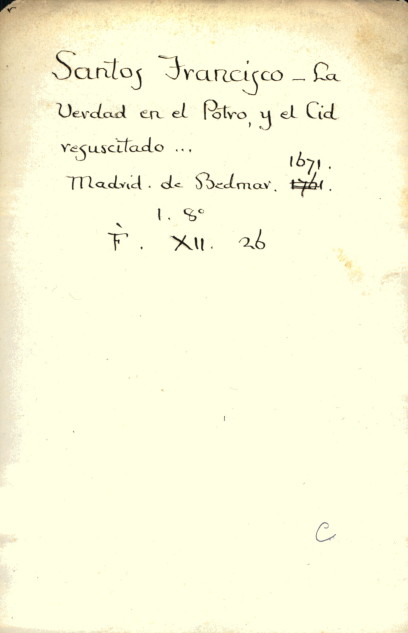 Santos Francisco – La
Verdad en el Potro, y el Cid
resuscitado ...
1671.
Madrid. de Bedmar. 1761.
1. 8º
F. XII. 26
C